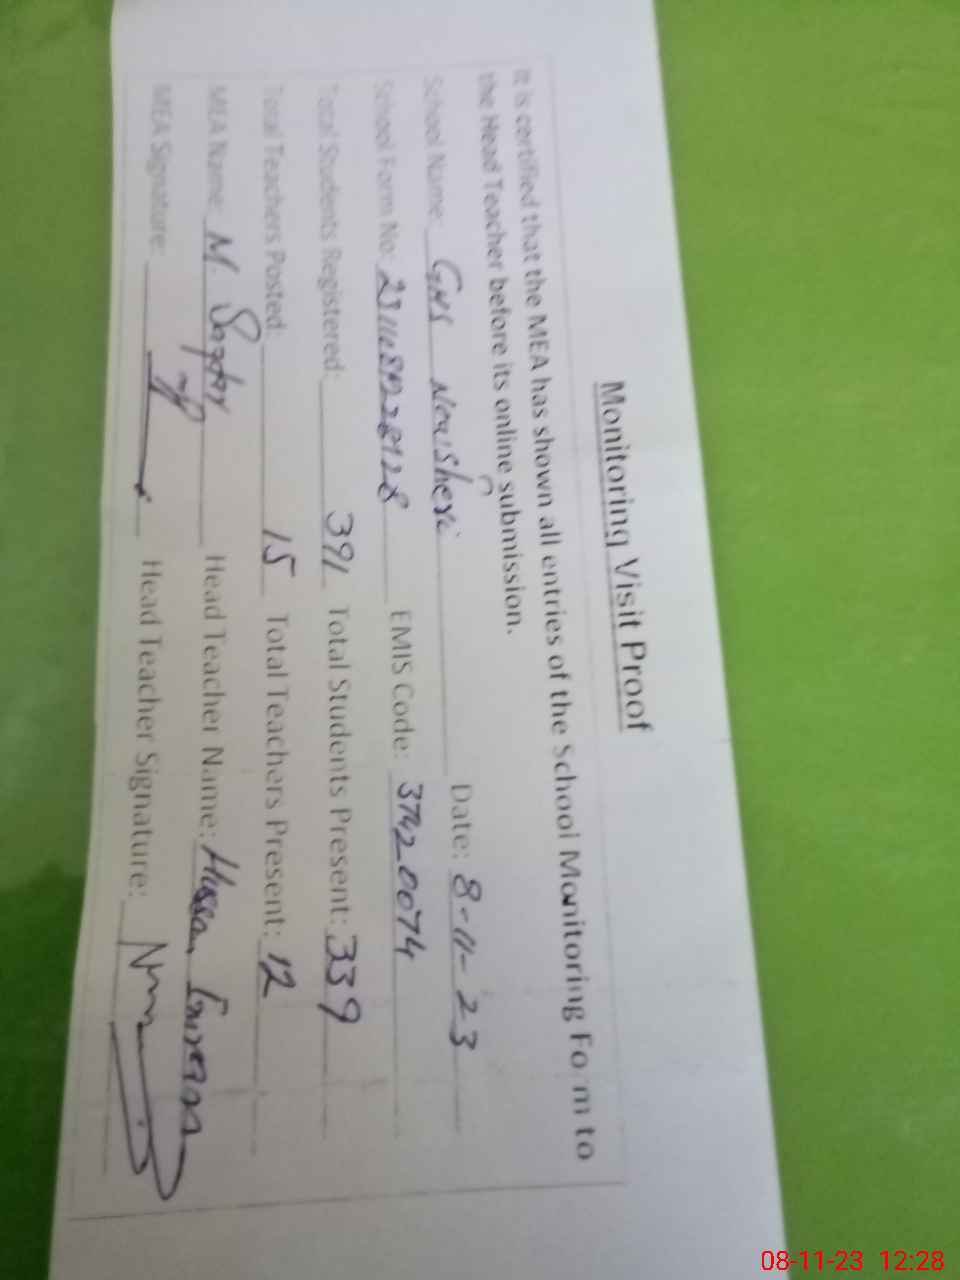 Monitoring Visit Proof
It is certified that the MEA has shown all entries of the School Monitoring Form to
the Head Teacher before its online submission.
School Name: GHS Date: 8-11-23
School Form No: EMIS Code: 37420074
Total Students Registered: 391 Total Students Present: 339
Total Teachers Posted: 15 Total Teachers Present: 12
MEA Name: M. Head Teacher Name: Hassan
MEA Signature: Head Teacher Signature:
08-11-23 12:28